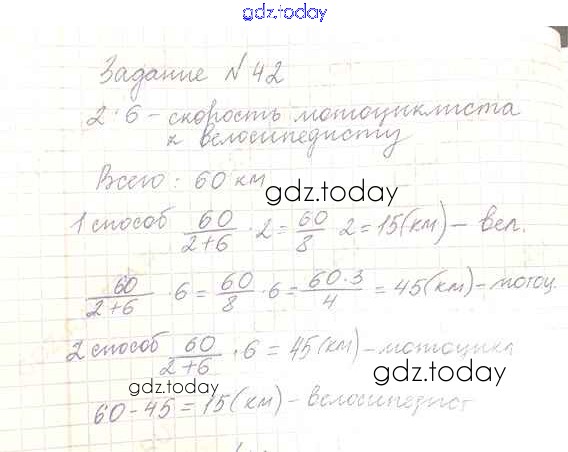 gdz.today
Задание №42
2:6 - скорость мотоциклиста
к велосипедисту
Всего: 60 км
gdz.today
1 способ 60/2+6 · 2 = 60/8 2 = 15(км) - вел.
60/2+6 · 6 = 60/8 · 6 = 60·3/4 = 45(км) - мотоц.
2 способ 60/2+6 · 6 = 45(км) - мотоцикл
gdz.today
gdz.today
60-45 = 15(км) - велосипедист